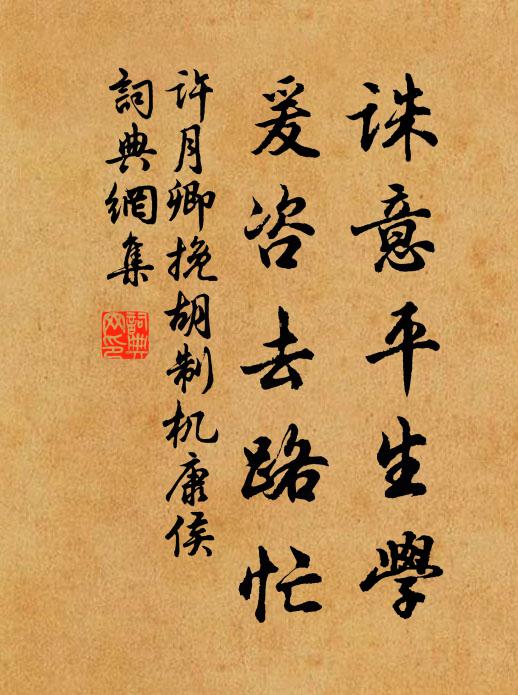 誅意平生學
爰咨去路忙
许月卿挽胡制机康侯
詞典網集
詞典
网印